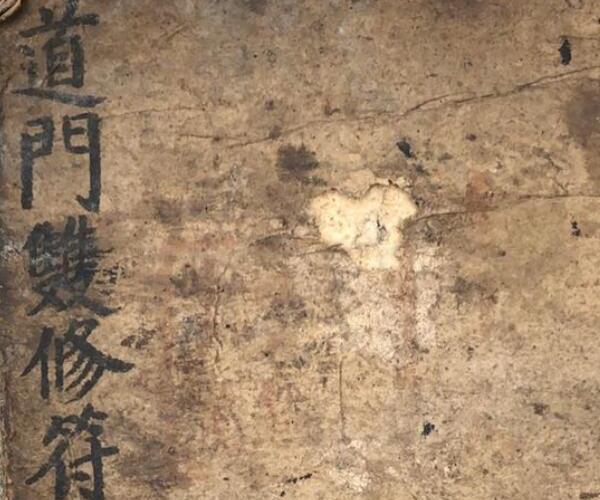 道門雙修符